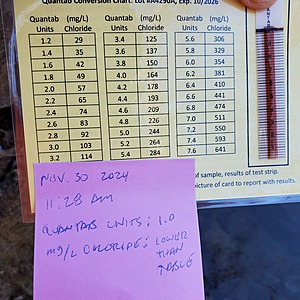 Quantab Conversion Chart: Lot #A4290A, Exp. 10/2026
Quantab Units (mg/L) Chloride Quantab Units (mg/L) Chloride Quantab Units (mg/L) Chloride
1.2 29 3.4 125 5.6 306
1.4 35 3.6 137 5.8 329
1.6 42 3.8 150 6.0 354
1.8 49 4.0 164 6.2 381
2.0 57 4.2 178 6.4 410
2.2 65 4.4 193 6.6 441
2.4 74 4.6 209 6.8 474
2.6 83 4.8 226 7.0 511
2.8 92 5.0 244 7.2 550
3.0 103 5.2 264 7.4 593
3.2 114 5.4 284 7.6 641
of sample, results of test strip.
picture of card to report with results.
NOV. 30 2024
11:28 AM
QUANTAB UNITS: 1.0
mg/L CHLORIDE: LOWER
THAN
TABLE